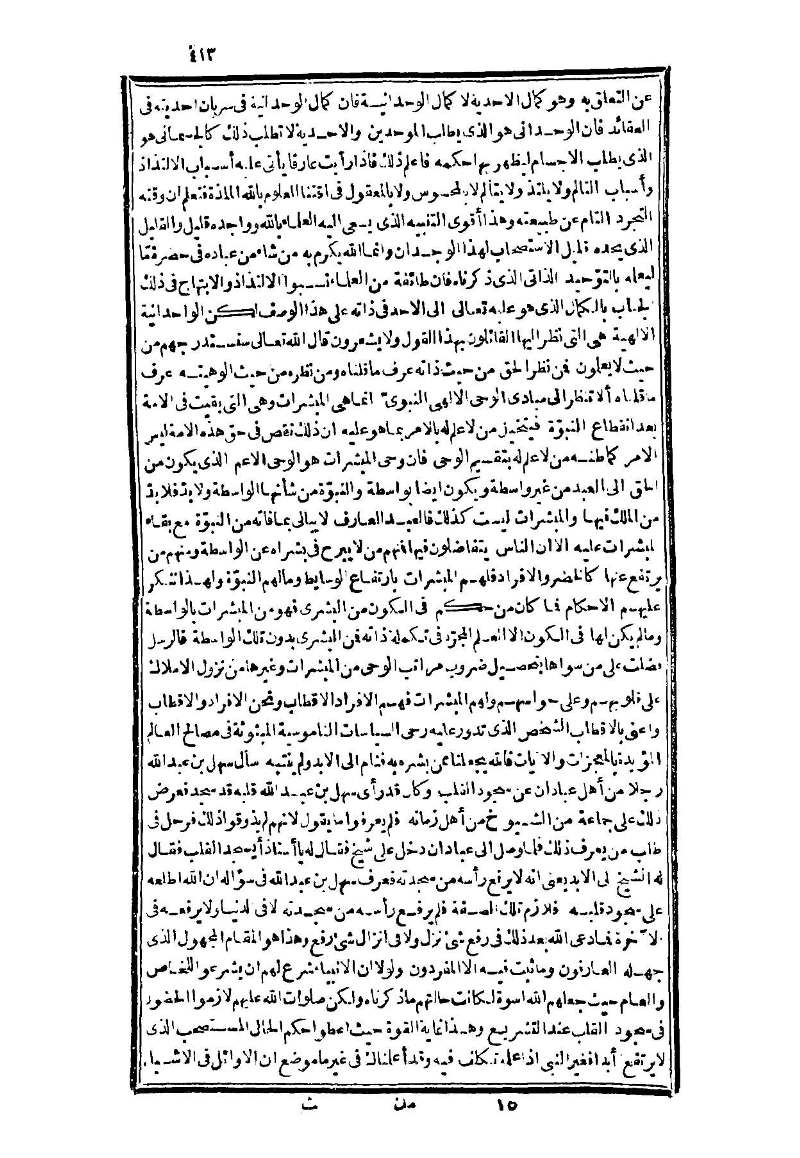 ٤١٣
عن التعلق به وهو كمال الاحدية لا كمال الوحدانية فان كمال الوحدانية فى سريان احديته فى
العقائد فان الوحدانى هو الذى يطلب الموحدين والاحدية لا تطلب ذلك كالجسمانى هو
الذى يطلب الاجسام ليظهر بها حكمه فاعلم ذلك فاذا رأيت عارفا يأتى عليه أسباب الالتذاذ
وأسباب التألم ولا يلتذ ولا يتألم لا بالمحسوس ولا بالمعقول فى اقتنا العلوم بالله الملذة فتعلم ان وقته
التجرد التام عن طبيعته وهذا أقوى التشبيه الذى يسعى اليه العلماء بالله وواجده قليل والقليل
الذى يجده قليل الاستصحاب لهذا الوجدان وانما الله يكرم به من شاء من عباده فى حضرة ما
ليعلمه بالتوحيد الذاتى الذى ذكرناه فان طائفة من العلماء نسبوا الالتذاذ والابتهاج فى ذلك
الجناب بالكمال الذى هو عليه تعالى الى الاحد فى ذاته على هذا الوصف لكن الواحدانية
الالهية هى التى نظر اليها القائلون بهذا القول ولا يشعرون قال الله تعالى سنستدرجهم من
حيث لا يعلمون فمن نظر الحق من حيث ذاته عرف ما قلناه ومن نظره من حيث الوهيته عرف
ما قلناه ألا تنظر الى مبادى الوحى الالهى النبوى انما هى المبشرات وهى التى بقيت فى الامة
بعد انقطاع النبوّة فيتخيل من لا علم له بالامر بما هو عليه ان ذلك نقص فى حق هذه الامة ليس
الامر كما ظنه من لا علم له بتقسيم الوحى فان وحى المبشرات هو الوحى الاعم الذى يكون من
الحق الى العبد من غير واسطة ويكون ايضا بواسطة والنبوّة من شأنها الواسطة ولا بد فلا بد
من الملك فيها والمبشرات ليست كذلك فالعبد العارف لا يبالى بما فاته من النبوّة مع بقاء
المبشرات عليه الا ان الناس يتفاضلون فيها فمنهم من لا يبرح فى بشراه عن الواسطة ومنهم من
يرتفع عنها كالخضر والافراد فلهم المبشرات بارتفاع الوسايط وما لهم النبوّة ولهذا تنكر
عليهم الاحكام فما كان من حكم فى الكون من البشرى فهو من المبشرات بالواسطة
وما لم يكن لها فى الكون الا العلم المجرّد فى تكملة ذاته فمن البشرى بدون تلك الواسطة فالرسل
فضلت على من سواها بتحصيل ضروب مراتب الوحى من المبشرات وغيرها من نزول الاملاك
على قلوبهم وعلى حواسهم ولهم المبشرات فهم الافراد الاقطاب ونحن الافراد والاقطاب
واعنى بالاقطاب الشخص الذى تدور عليه رحى السياسات الناموسية المبثوثة فى مصالح العالم
المؤيدة بالمعجزات والآيات فالله يجعلنا ممن بشره به فنام الى الابد ولم ينتبه سأل سهل بن عبد الله
رجلا من أهل عبادان عن سجود القلب وكان قد رأى سهل بن عبد الله قلبه قد سجد فعرض
ذلك على جماعة من الشيوخ من أهل زمانه فلم يعرفوا ما يقول لانهم لم يذوقوا ذلك فرحل فى
طلب من يعرف ذلك فلما وصل الى عبادان دخل على شيخ فقال له يا أستاذ أيسجد القلب فقال
له الشيخ الى الابد يعنى انه لا يرفع رأسه من سجدته فعرف سهل بن عبد الله فى سؤاله ان الله اطلعه
على سجود قلبه فلازم تلك الصفة فلم يرفع رأسه من سجدته لا فى الدنيا ولا يرفعه فى
الآخرة فما دعى الله بعد ذلك فى رفع شئ نزل ولا فى انزال شئ رفع وهذا هو المقام المجهول الذى
جهله العارفون وما ثبت فيه الا المفردون ولولا ان الانبياء شرع لهم ان يشرعوا للخاص
والعام حيث جعلهم الله اسوة لكانت حالتهم ما ذكرناه ولكن صلوات الله عليهم لازموا الحضور
فى سجود القلب عند التشريع وهذا نهاية القوة حيث اعطوا حكم الحال المستصحب الذى
لا يرتفع أبدا فغير النبى اذا علمه تكلف فيه وقد أعلمناك فى غير ما موضع ان الاوائل فى الاشياء
١٥ من ث